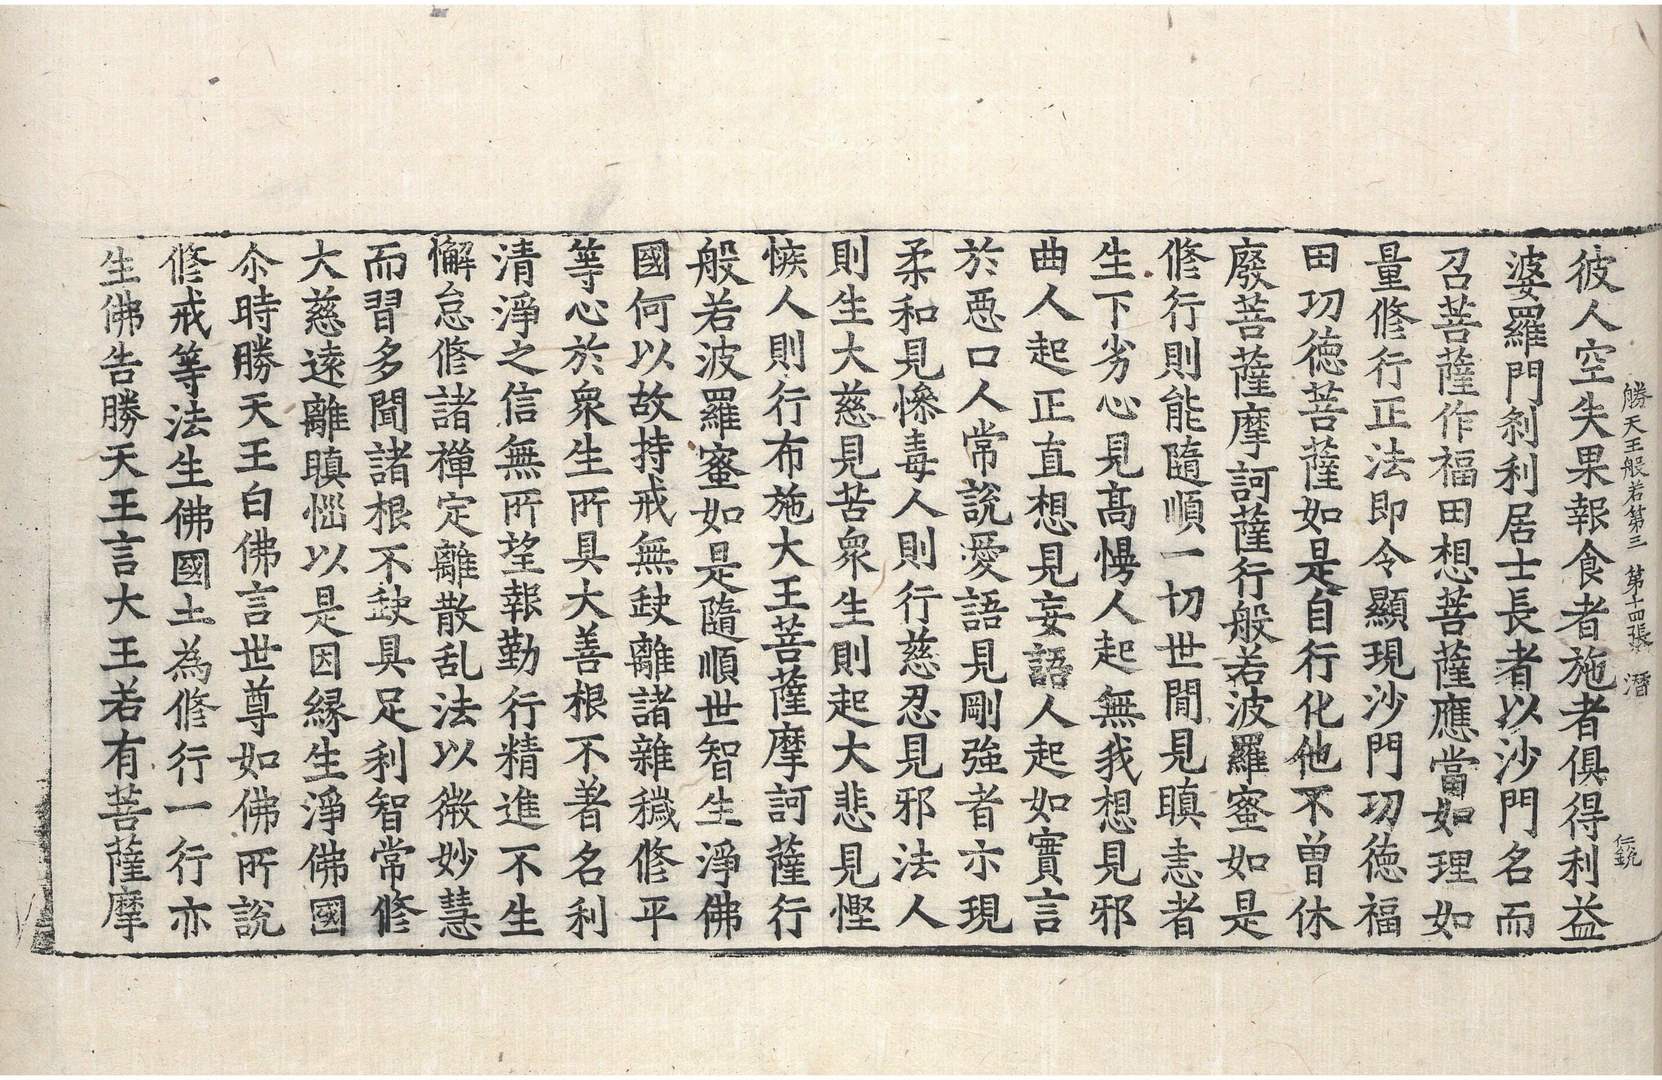 彼人空失果報食者施者俱得利益
勝天王般若第三　第十四張　潛
婆羅門刹利居士長者以沙門名而
召菩薩作福田想菩薩應當如理如
量修行正法即令顯現沙門功徳福
田功徳菩薩如是自行化他不曽休
廢菩薩摩訶薩行般若波羅蜜如是
修行則能隨順一切世閒見瞋恚者
生下劣心見髙慢人起無我想見邪
曲人起正直想見妄語人起如實言
於惡口人常説愛語見剛強者亦現
柔和見慘毒人則行慈忍見邪法人
則生大慈見苦衆生則起大悲見慳
嫉人則行布施大王菩薩摩訶薩行
般若波羅蜜如是隨順世智生淨佛
國何以故持戒無缺離諸雜穢修平
等心於衆生所具大善根不著名利
清淨之信無所望報勤行精進不生
懈怠修諸禪定離散乱法以微妙慧
而習多聞諸根不缺具足利智常修
大慈遠離瞋惱以是因縁生淨佛國
尒時勝天王白佛言世尊如佛所説
修戒等法生佛國土為修行一行亦
生佛告勝天王言大王若有菩薩摩